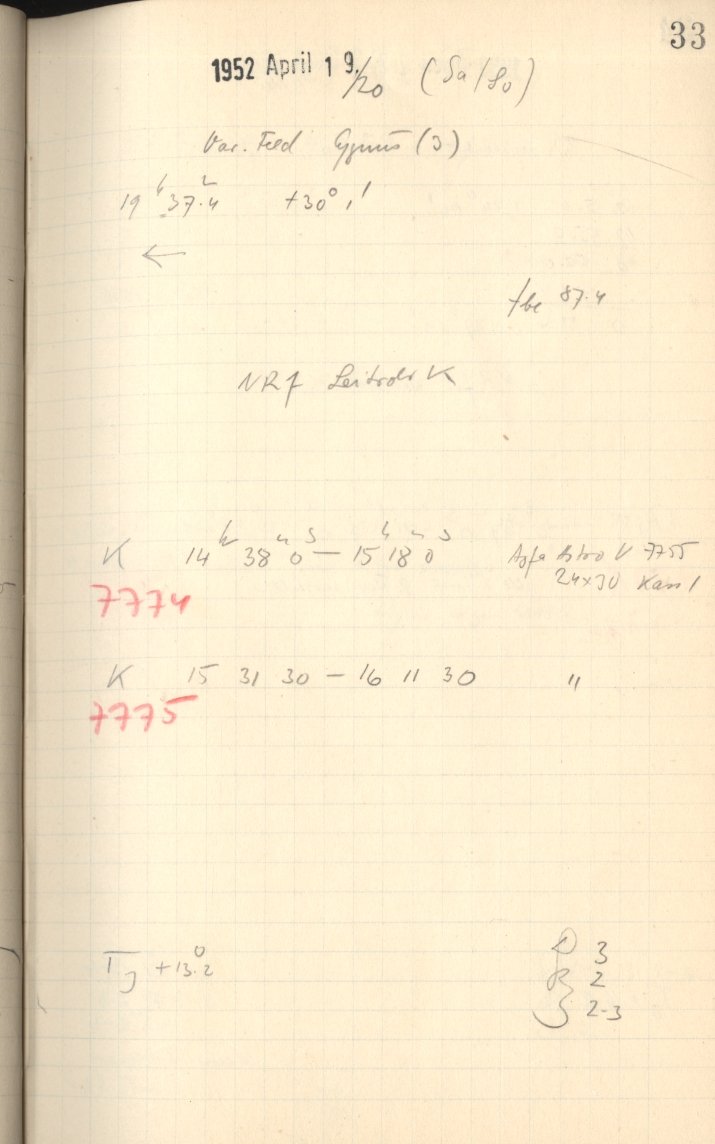 33
1952 April 19./20 (Sa/So)
Var. Feld Cygnus (3)
19h 37.4 +30° 1'
←
tbe 87.4
NRf Leitrohr K
K 14h 38m 0s — 15h 18m 0s Agfa Astro V 7755
24x30 Kass 1
7774
K 15 31 30 — 16 11 30 "
7775
TJ +13.°2
D 3
R 2
S 2-3